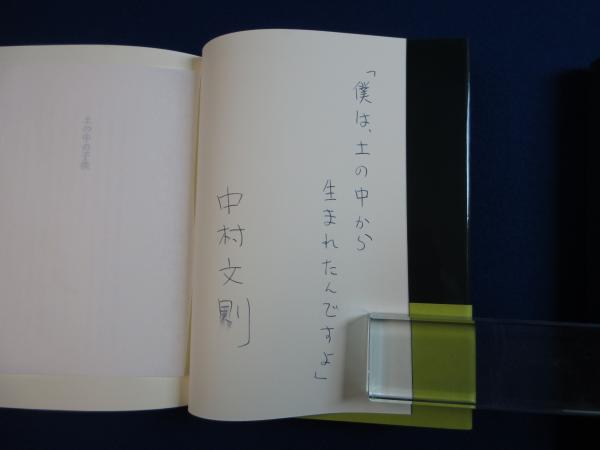 「僕は、土の中から
生まれたんですよ」
中村文則
土の中の子供